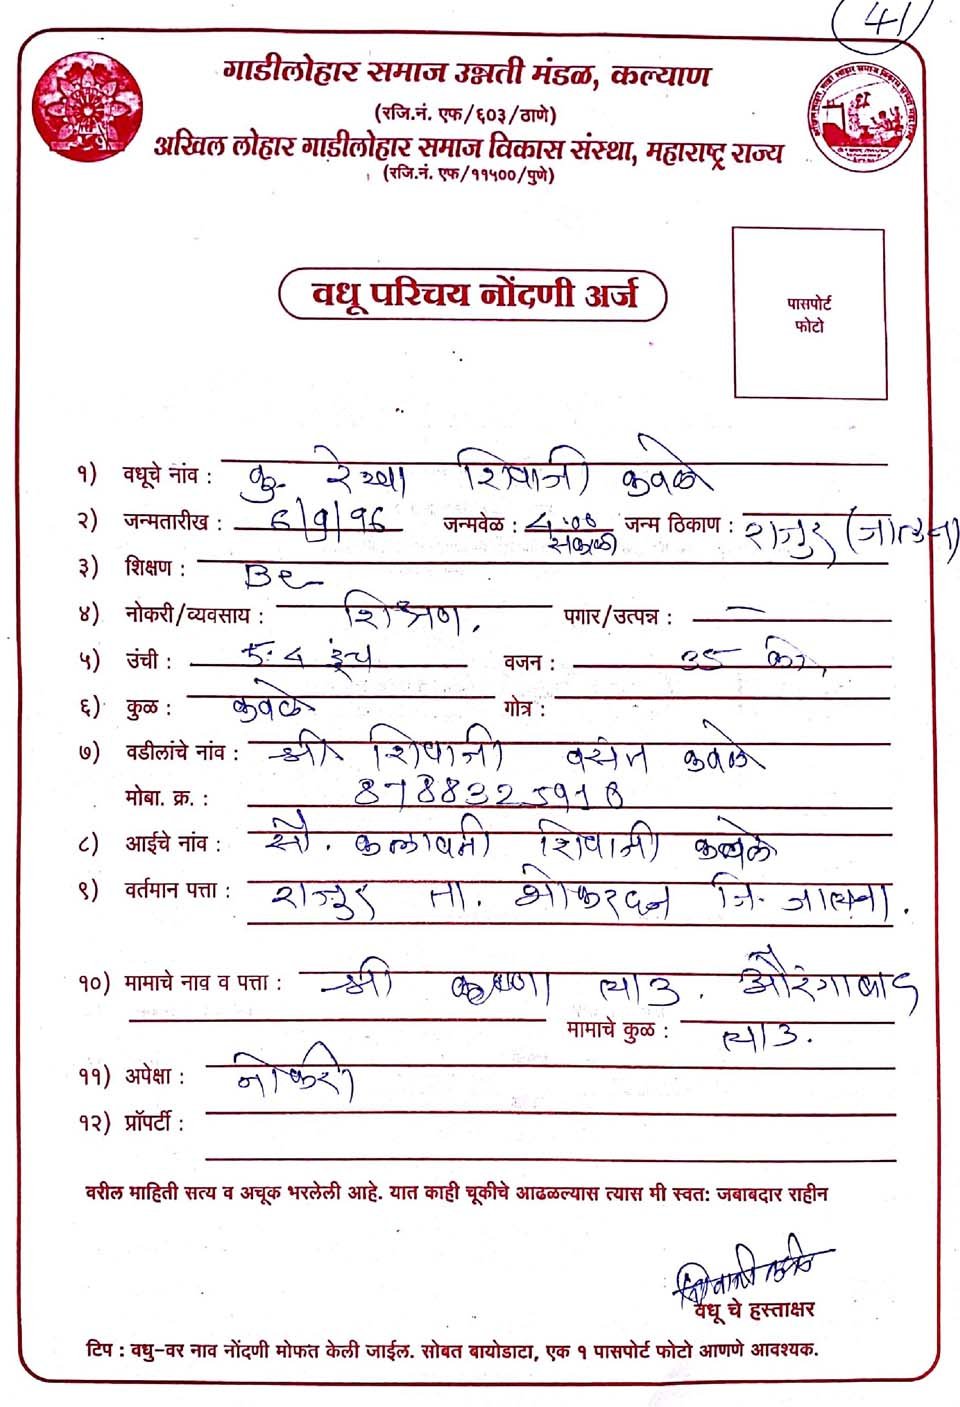 41
गाडीलोहार समाज उन्नती मंडळ, कल्याण
(रजि.नं. एफ/६०३/ठाणे)
अखिल लोहार गाडीलोहार समाज विकास संस्था, महाराष्ट्र राज्य
(रजि.नं. एफ/११५००/पुणे)
पासपोर्ट
फोटो
वधू परिचय नोंदणी अर्ज
१) वधूचे नांव : कु. रेखा शिवाजी कवळे
२) जन्मतारीख : 6/9/96 जन्मवेळ : 4:00 सकाळी जन्म ठिकाण : राजुर (जालना)
३) शिक्षण : Be
४) नोकरी/व्यवसाय : शिक्षण. पगार/उत्पन्न : —
५) उंची : 5.4 इंच वजन : 35 के.
६) कुळ : कवळे गोत्र :
७) वडीलांचे नांव : श्री. शिवाजी वसंत कवळे
मोबा. क्र. :
८) आईचे नांव : सौ. कलावती शिवाजी कवळे
९) वर्तमान पत्ता : राजुर ता. भोकरदन जि. जालना.
१०) मामाचे नाव व पत्ता : श्री कृष्णा औरंगाबाद
मामाचे कुळ :
११) अपेक्षा : नोकरी
१२) प्रॉपर्टी :
वरील माहिती सत्य व अचूक भरलेली आहे. यात काही चूकीचे आढळल्यास त्यास मी स्वत: जबाबदार राहीन
वधू चे हस्ताक्षर
टिप : वधु-वर नाव नोंदणी मोफत केली जाईल. सोबत बायोडाटा, एक १ पासपोर्ट फोटो आणणे आवश्यक.